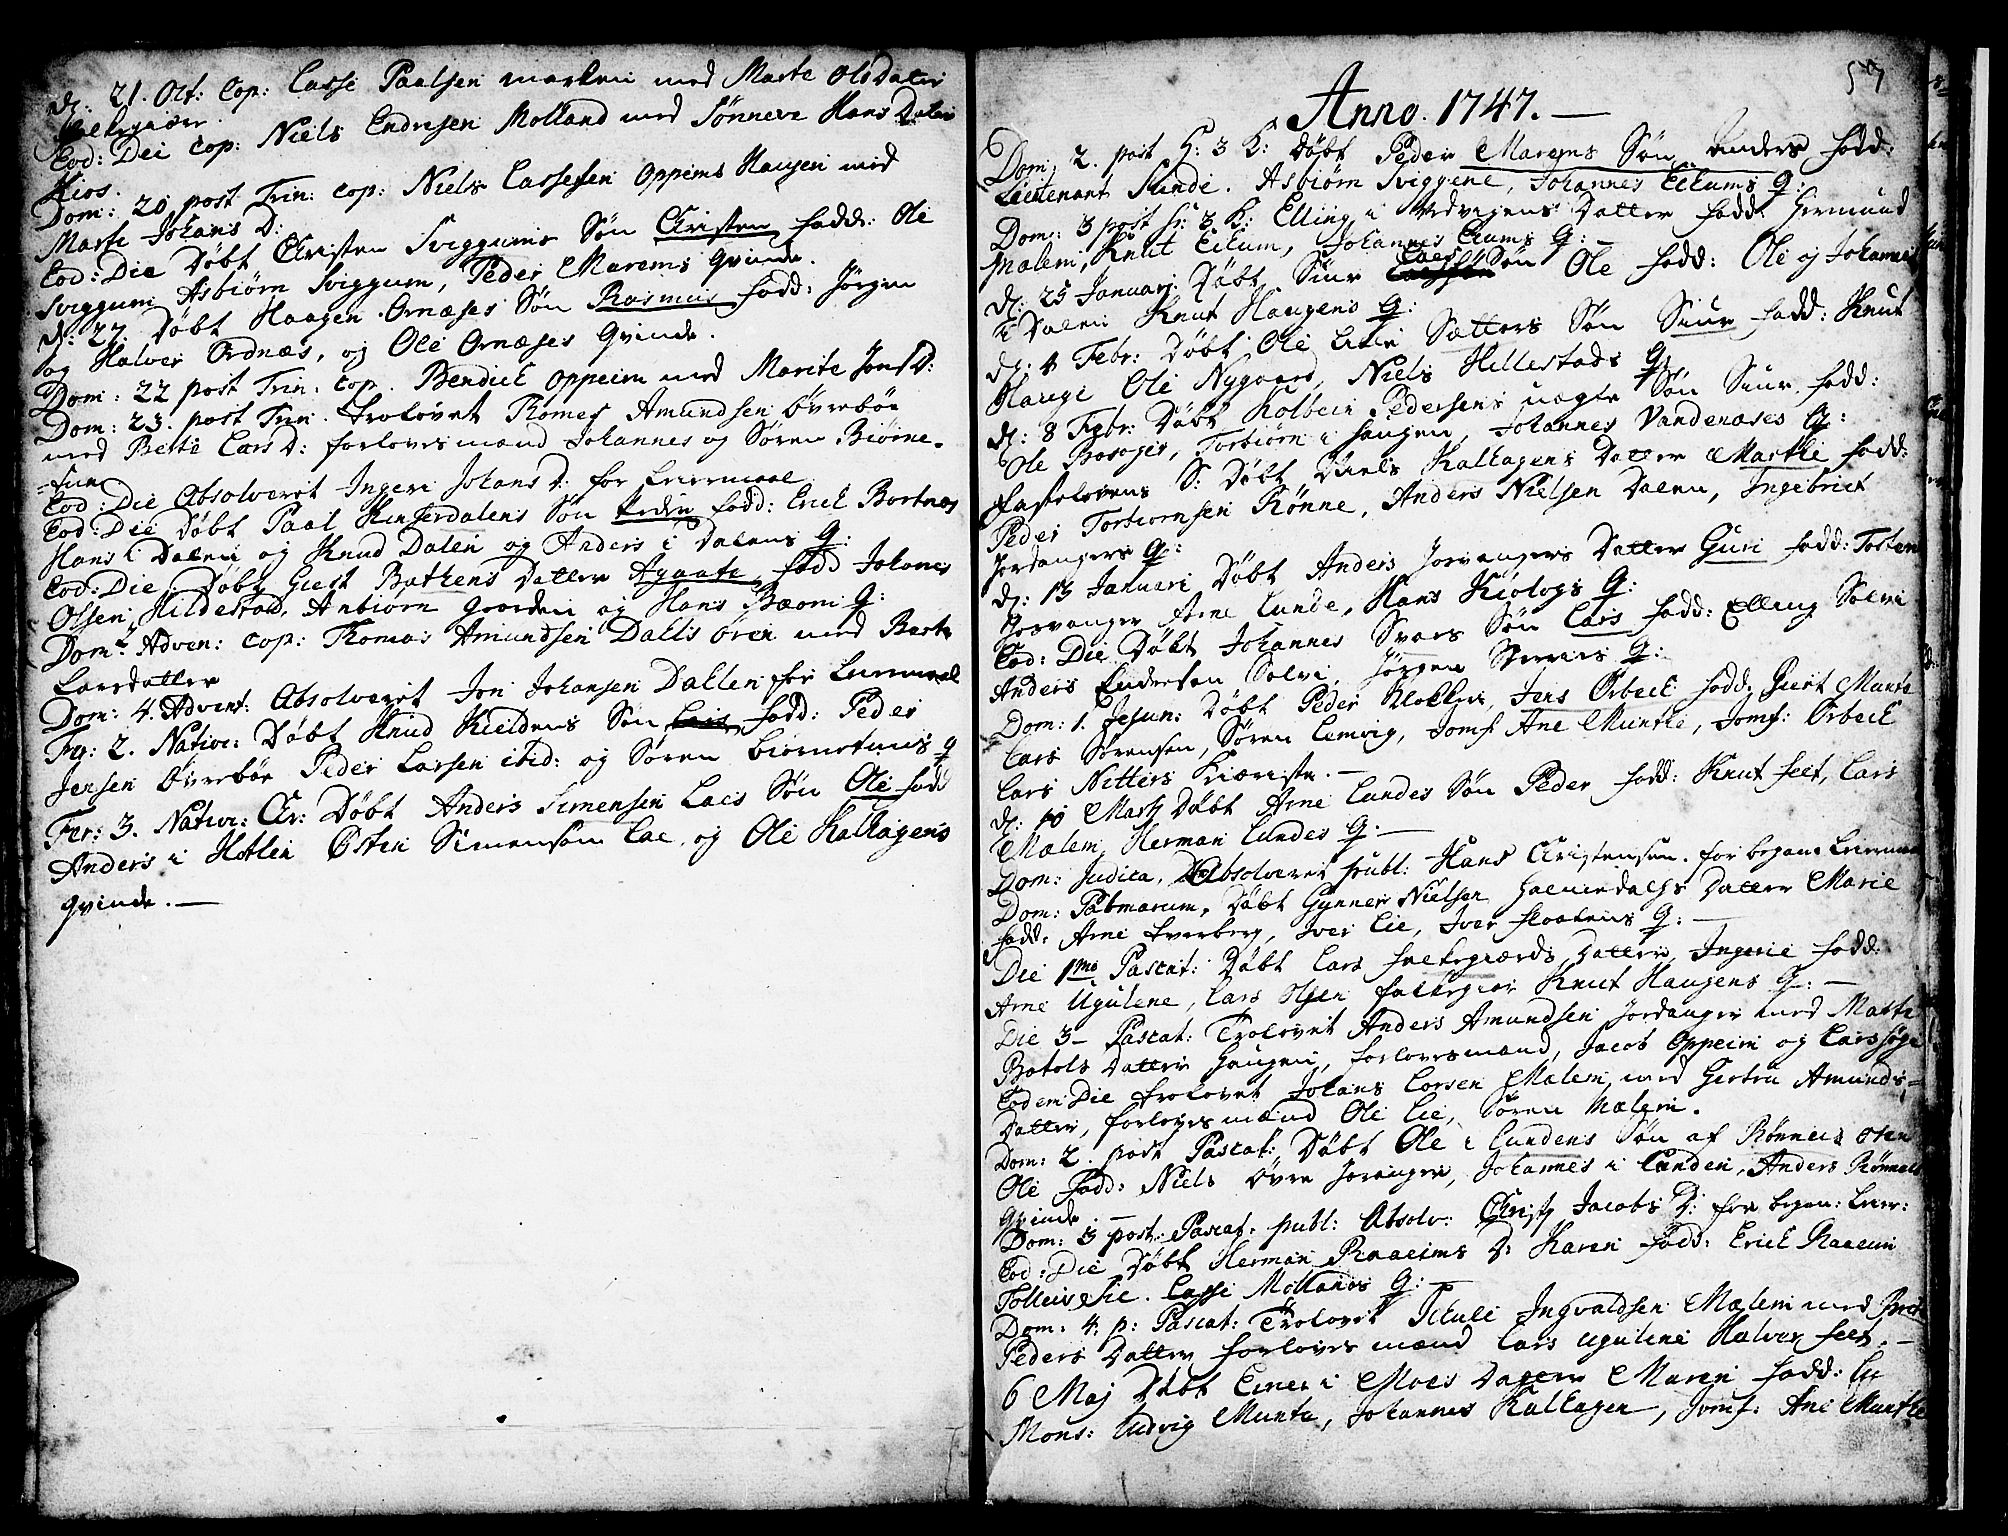 d: 21. Oct: Cop: Lasse Paalsen marken med Marte OlsDatter
Falkegiær.
Eod: Dei Cop: Niels Endresen Molland med Sønneva Hans Datter
Kios.
Dom: 20 post Trin: Cop: Niels Lassesen Oppeims Haugen med
Marte Johans D:
Eod: Die Døbt Christen Sviggums Søn Christen fadd: Ole
Sviggum Asbiørn Sviggum, Peder Marems Qvinde.
d: 27. Døbt Haagen Ornæses Søn Rasmus fadd: Jørgen
og Halver Ordnæs, og Ole Ornæses Qvinde.
Dom: 22 post Trin: Cop. Bendick Oppeim med Marite JonsD:
Dom: 23. post Trin. troloved Tomes Amundsen Øvrebøe
med Berte Lars D: forlovesmænd Johannes og Søren Biørne-
=tun
Eod: Die Absolveret Ingeri Johans D: for Leiermaal
Eod: Die Døbt Paal Kinserdalens Søn Endre fadd: Erick Bortnæs
Hans i Dalen og Knud Dalen og Anders i Dalens Q:
Eod: Die Døbt Giest Bathens Datter Agaata fadd Johanes
Olsen Hildestad, Anbiørn Gaarden og Hans Bæorn Q:
Dom: 2 Adven: Cop: Thomas Amundsen Dahls Øren med Berte
Larsdatter
Dom: 4. Advent: Absolveret Jon Johansen Dahlen for Leiermaal
Fr: 2. Nativ: Døbt Knud Kieldens Søn Lars fadd: Peder
Jensen Øvrebøe Peder Larsen ibid: og Søren Biørnetuns Q
Fer: 3. Nativ: Chr: Døbt Anders Simensen Laes Søn Ole fadd
Anders i Hotlen Østen Simensøn Lae, og Ole Kalhagens
Qvinde. —
57
Anno. 1747. —
Dom: 2. post H: 3 K: Døbt Peder Marems Søn Anders fadd:
Lieutenant Munde. Asbiørn Sviggene, Johannes Eikums Q:
Dom: 3 post H: 3 K: Elling i Vedvigens Datter fadd: Giermund
Malem, Knut Eikum, Johannes Elums Q: —
d: 25 Januari Døbt Siur Laes Søn Ole fadd: Ole og Johannes
i Dalen Knut Haugens Q:
d: 4 Febr: Døbt Ole Lille Sætters Søn Siur fadd: Knut
Hauge Ole Nygaard, Niels Hillestads Q:
d: 8 Febr: Døbt Kolbein Pedersens uægte Søn Siur fadd:
Ole Bosoges, Torbiørn i Haugen, Johannes Vandenæses Q:
Fastelovens S: Døbt Niels Kalhagens Datter Marthe fadd:
Peder Torbiornsen Rønne, Anders Nielsen Dalen, Ingebrict
Jordangers Q:
d: 13 Januari Døbt Anders Jorvangers Datter Guri fadd: Tosten
Jorvanger Arne Lunde, Hans Kiølogs Q:
Eod: Die Døbt Johannes Svars Søn Lars fadd: Elling Solvi
Anders Endresen Solvi, Jørgen Q:
Dom: 1. Jejun: Døbt Peder Klokker, Jens Ørbeck fadd: Giert Munte
Lars Sørensen, Søren Lemvig, Jomf: Ane Munthe, Jomf: Ørbeck
Lars Nitters Kiæreste. —
d: 10 Marty Døbt Arne Lundes Søn Peder fadd: Knut Feet, Lars
Malem, Herman Lundes Q: —
Dom: Judica, Absolveret publ: Hans Christensen for began: Leiermaal
Dom: Palmarum, Døbt Gunner Nielsen Datter Marie
fadd: Arne Kverberg, Iver Lie, Iver floatens Q: —
Die 1mo Pascat: Døbt Lars Falkegiærds Datter Ingerie fadd:
Arne Ugulene, Lars Olsen falkegiær Knut Haugens Q: —
Die 3 — Pascat: Trolovet Anders Amundsen Jordanger med Marte
Botols Datter Haugen, forlovesmænd, Jacob Oppeim og Lars Høge
Eodem Die trolovet Johans Lorsen Malem, med Giertru Amunds-
Datter, forloves mænd Ole Lie, Søren Malem.
Dom: 2. post Pascat: Døbt Ole i Lundens Søn af Rønnei Øren
Ole fadd: Niels Øvre Joranger, Johannes i Lunden, Anders Rønneis
Qvinde. —
Dom: 3 post: Pascat: publ: Absolv: Christ Jacobs D: for began: Leier:
Eod: Die Døbt Herman Raaeims D: Karen fadd: Erick Raaeim
Tolleiv Lie. Lasse Mollands Q: —
Dom: 4. p: Pascat: Trolovet Schule Ingvaldsen Mælem med Brite
Peders Datter forloves mænd Lars Ugulene Halver Feet. —
6 Maj Døbt Einer i Moes Datter Maren fadd:
Mons: Ludvig Munte, Johannes Kalhagen, Jomf: Ane Munthe